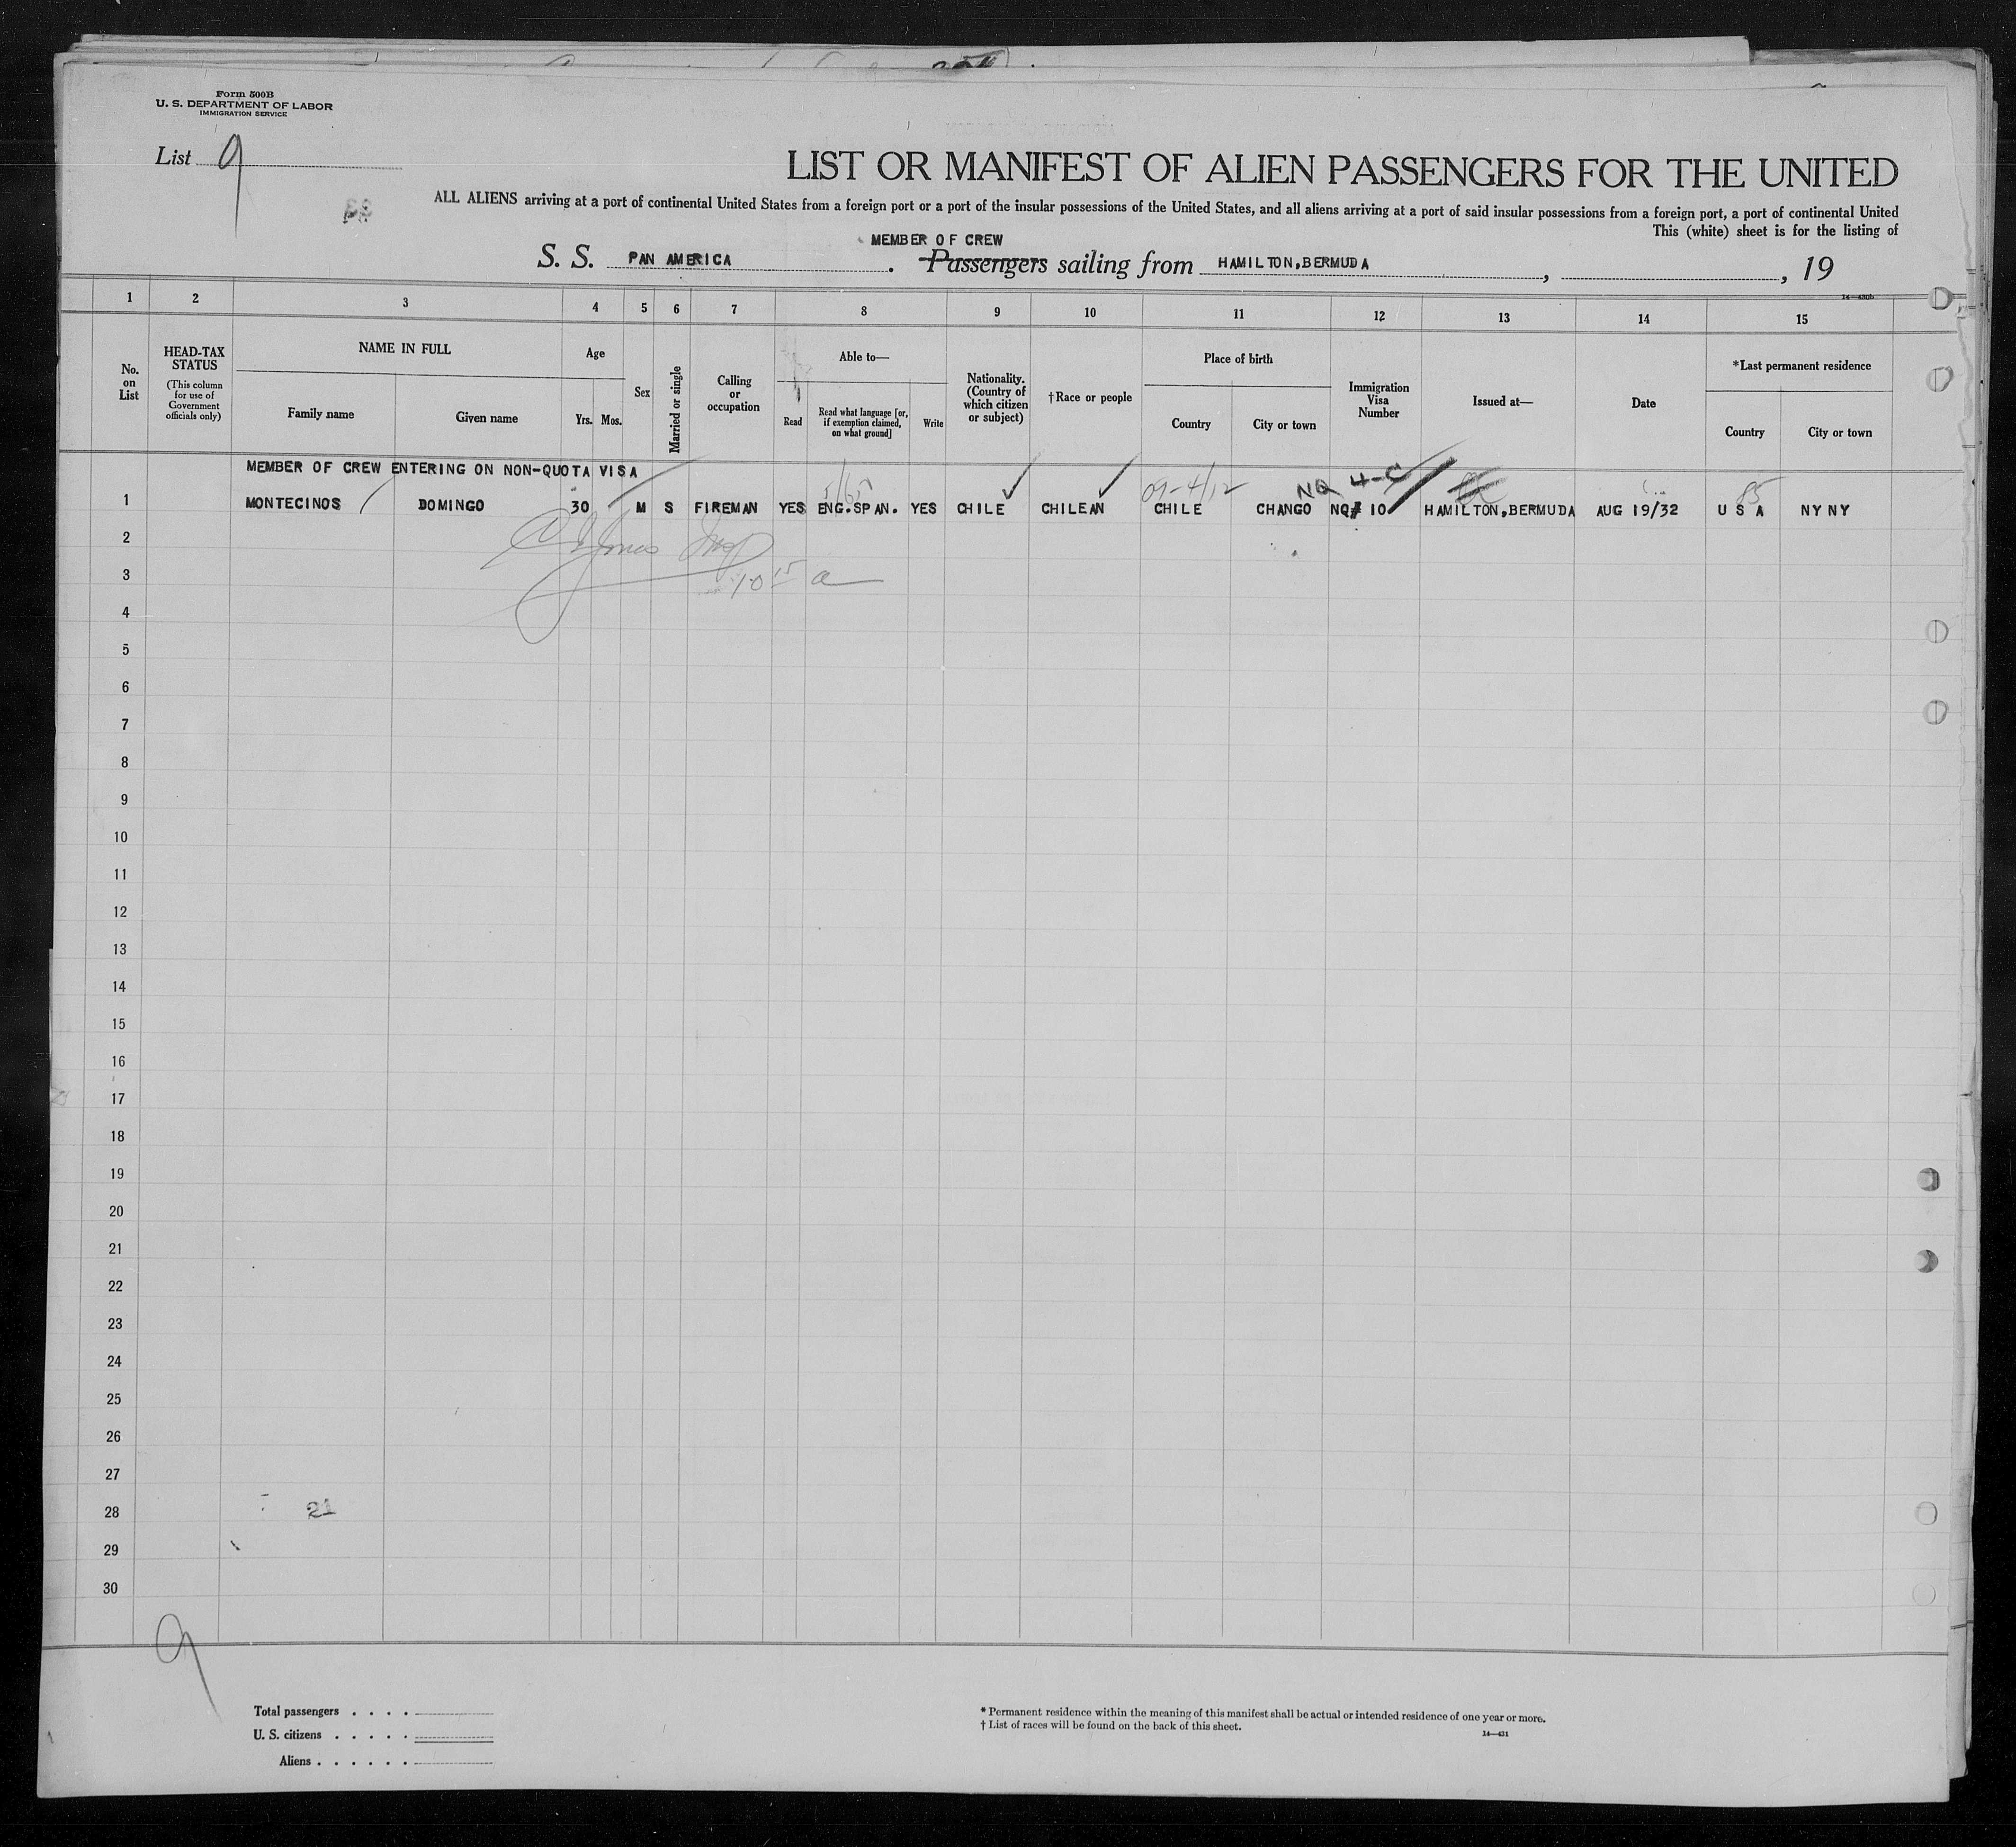 Form 500B
U. S. DEPARTMENT OF LABOR
IMMIGRATION SERVICE
List 9
LIST OR MANIFEST OF ALIEN PASSENGERS FOR THE UNITED
ALL ALIENS arriving at a port of continental United States from a foreign port or a port of the insular possessions of the United States, and all aliens arriving at a port of said insular possessions from a foreign port, a port of continental United
This (white) sheet is for the listing of
MEMBER OF CREW
S. S. PAN AMERICA . Passengers sailing from HAMILTON,BERMUDA , , 19
1 2 3 4 5 6 7 8 9 10 11 12 13 14 15
No. on List
HEAD-TAX STATUS
(This column for use of Government officials only)
NAME IN FULL
Family name
Given name
Age
Yrs. Mos.
Sex
Married or single
Calling or occupation
Able to—
Read
Read what language [or, if exemption claimed, on what ground]
Write
Nationality. (Country of which citizen or subject)
†Race or people
Place of birth
Country
City or town
Immigration Visa Number
Issued at—
Date
*Last permanent residence
Country
City or town
MEMBER OF CREW ENTERING ON NON-QUOTA VISA
NQ 4-C
85
1 MONTECINOS DOMINGO 30 M S FIREMAN YES ENG.SPAN. YES CHILE CHILEAN CHILE CHANGO NQ# 10 HAMILTON,BERMUDA AUG 19/32 U S A NY NY
2
3 10 15 a
4
5
6
7
8
9
10
11
12
13
14
15
16
17
18
19
20
21
22
23
24
25
26
27
28 21
29
30
9
Total passengers . . . .
U. S. citizens . . . . .
Aliens . . . . . .
* Permanent residence within the meaning of this manifest shall be actual or intended residence of one year or more.
† List of races will be found on the back of this sheet.
14—431